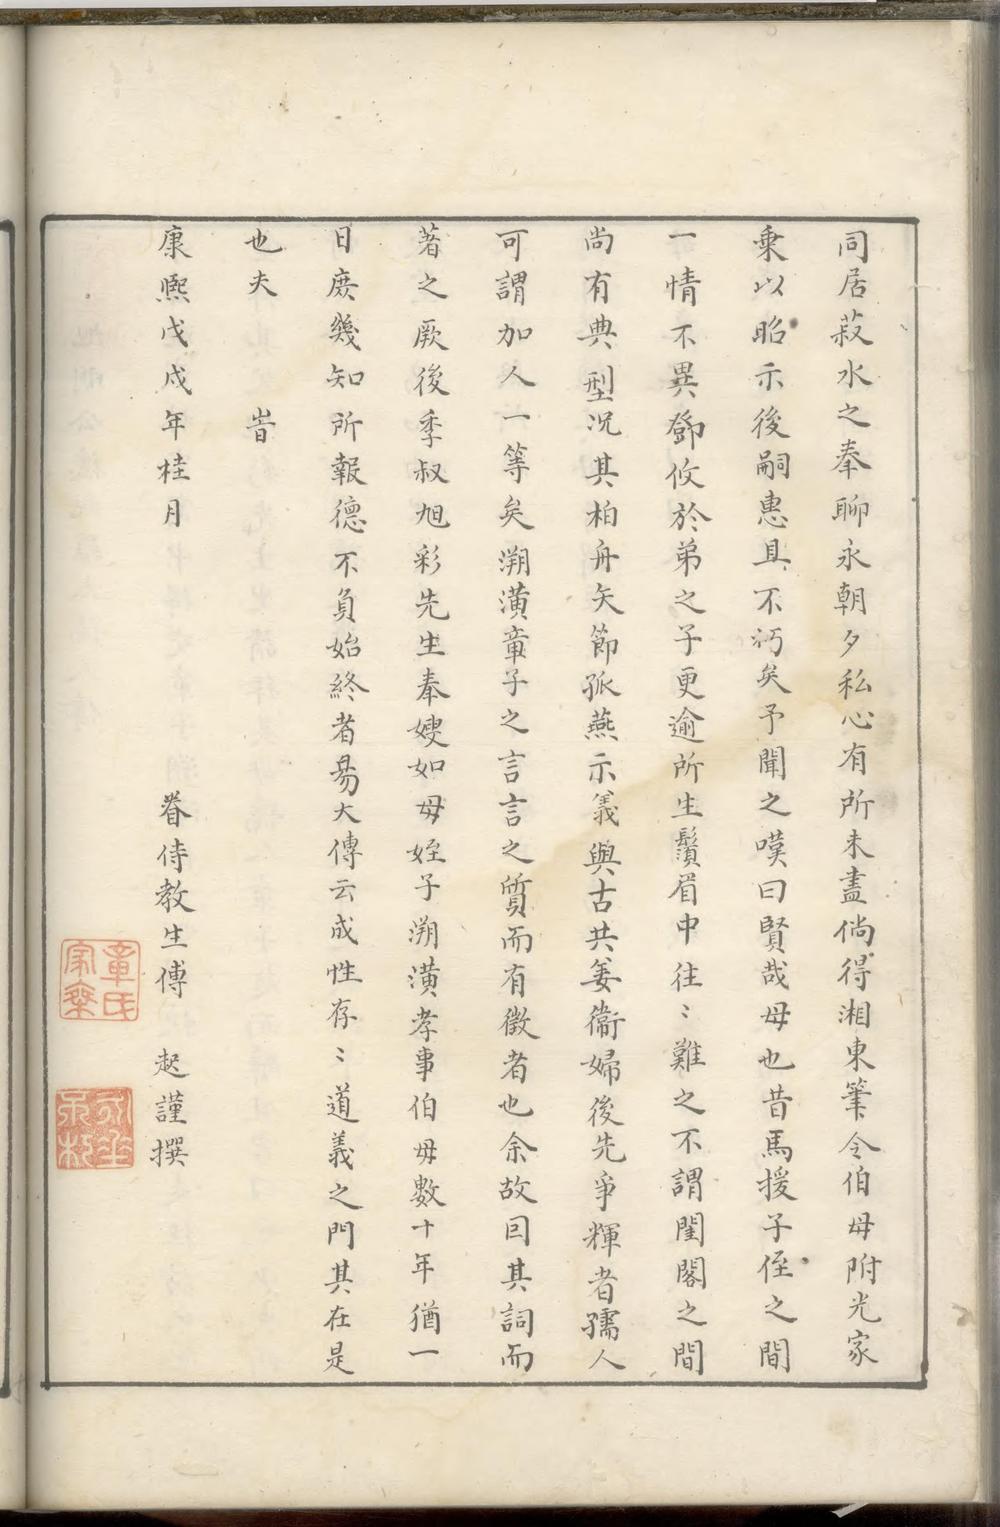 同居菽水之奉聊永朝夕私心有所未盡倘得湘東筆令伯母附光家
乗以昭示後嗣惠且不朽矣予聞之嘆曰賢哉母也昔馬援子侄之間
一情不異鄧攸於弟之子更逾所生鬚眉中往〻難之不謂閨閣之間
尚有典型况其柏舟矢節孤燕示義與古共姜衞婦後先爭輝者孺人
可謂加人一等矣溯潢章子之言言之質而有徵者也余故囙其詞而
著之厥後季叔旭彩先生奉嫂如母姪子溯潢孝事伯母數十年猶一
日庻幾知所報德不負始終者昜大傳云成性存〻道義之門其在是
也夫 旹
康熈戊戌年桂月 眷侍教生傅 趂謹撰
章氏家乘
永垂不朽